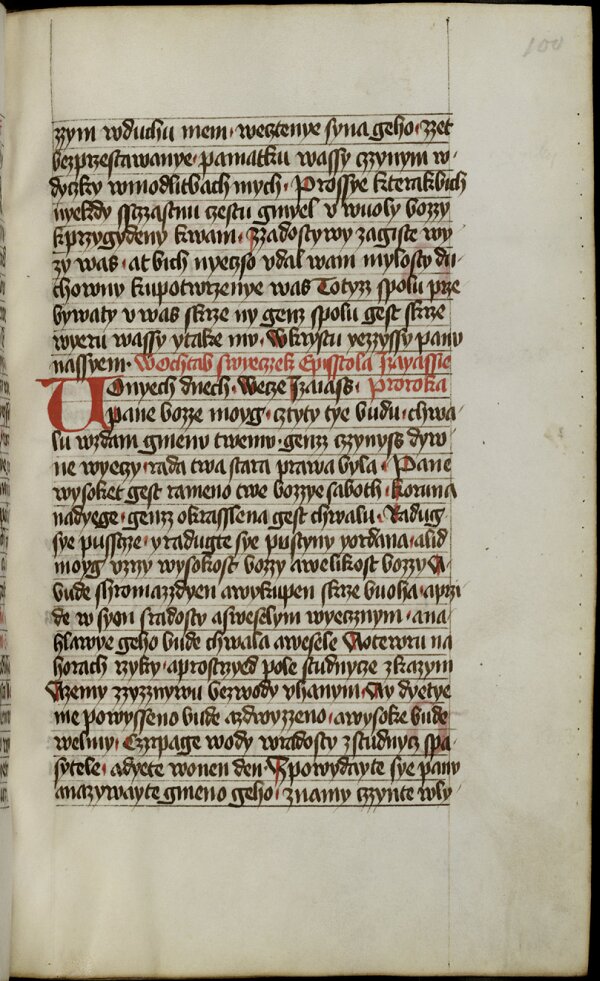 100
zzym wduchu mem · wecztenye syna geho · zzet
bezprzestawanye · pamatku wassy czzynym w-
dyczky wmodlitbach mych · Prossye kterakbich
nyekdy ssczzastnu czestu gmyel v wuoly bozzy
kprzygydeny kwam · Zzadostywy zagiste wy
zy was · at bich nyeczso vdal wam mylosty du
chowny kupotwrzenye was Totyzz spolu prze
bywaty v was skrze ny genz spolu gest skrze
wyeru wassy ytake mu · Wkrystu yezzyssy panu
nassyem · Wochtab swyeczek Epistola Izayassie
Vonyech dnech · Wecze Izaiass · Proroka
pane bozze moyg · cztyty tye budu · chwa-
lu wzdam gmenu twemu · genzz czzynyss dyw
ne wyeczy · rada twa stara prawa byla · Pane
wysoket gest rameno twe bozzye saboth · Koruna
nadyege · genzz okrasslena gest chwalu · Radug
sye pusscze · yradugte sye pustyny yordana · alid
moyg vzrzy wysokost bozzy awelikost bozzy A-
bude shromazzdyen awykupen skrze buoha · aprzi
de w syon sradosty asweselym wyecznym · ana
hlawye geho bude chwala awesele Aotewru na
horach rzyky · aprostrzyed pole studnycze zkazym
Azemy zzyzznywu bezwody vhanym · Ay dyetye
me powysseno bude azdwyzzeno · awysoke bude
welmy · Czzrpage wody wradosty zstudnycz spa-
sytele · adyete wonen den · Zpowydayte sye panu
anazywayte gmeno geho · znamy czzynte wly